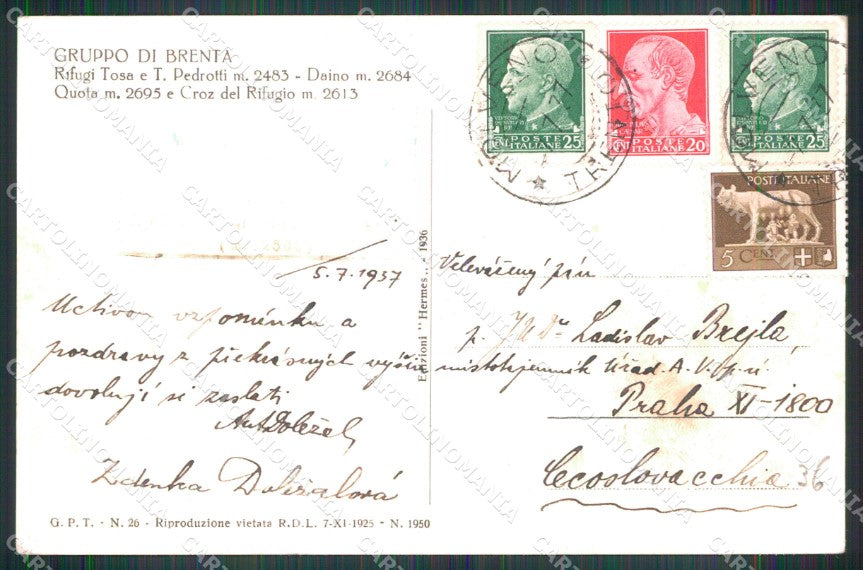 GRUPPO DI BRENTA
Rifugi Tosa e T. Pedrotti m. 2483 - Daino m. 2684
Quota m. 2695 e Croz del Rifugio m. 2613
POSTE ITALIANE
CENT 25
POSTE ITALIANE
CENT 20
POSTE ITALIANE
CENT 25
MOLVENO
TRENTO
POSTE ITALIANE
5 CENT
5.7.1937
Uctivou vzpomínku a
pozdravy z překrásných výšin
dovolují si zaslati
Ant Doležel
Zdenka Doležalová
Edizioni "Hermes" - 1936
Velevážený pán
p. JUDr Ladislav Brejla,
místotajemník Úřad. A.
Praha XI-1800
Cecoslovacchia
36
G. P. T. - N. 26 - Riproduzione vietata R.D.L. 7-XI-1925 - N. 1950
CARTOLINOMANIA